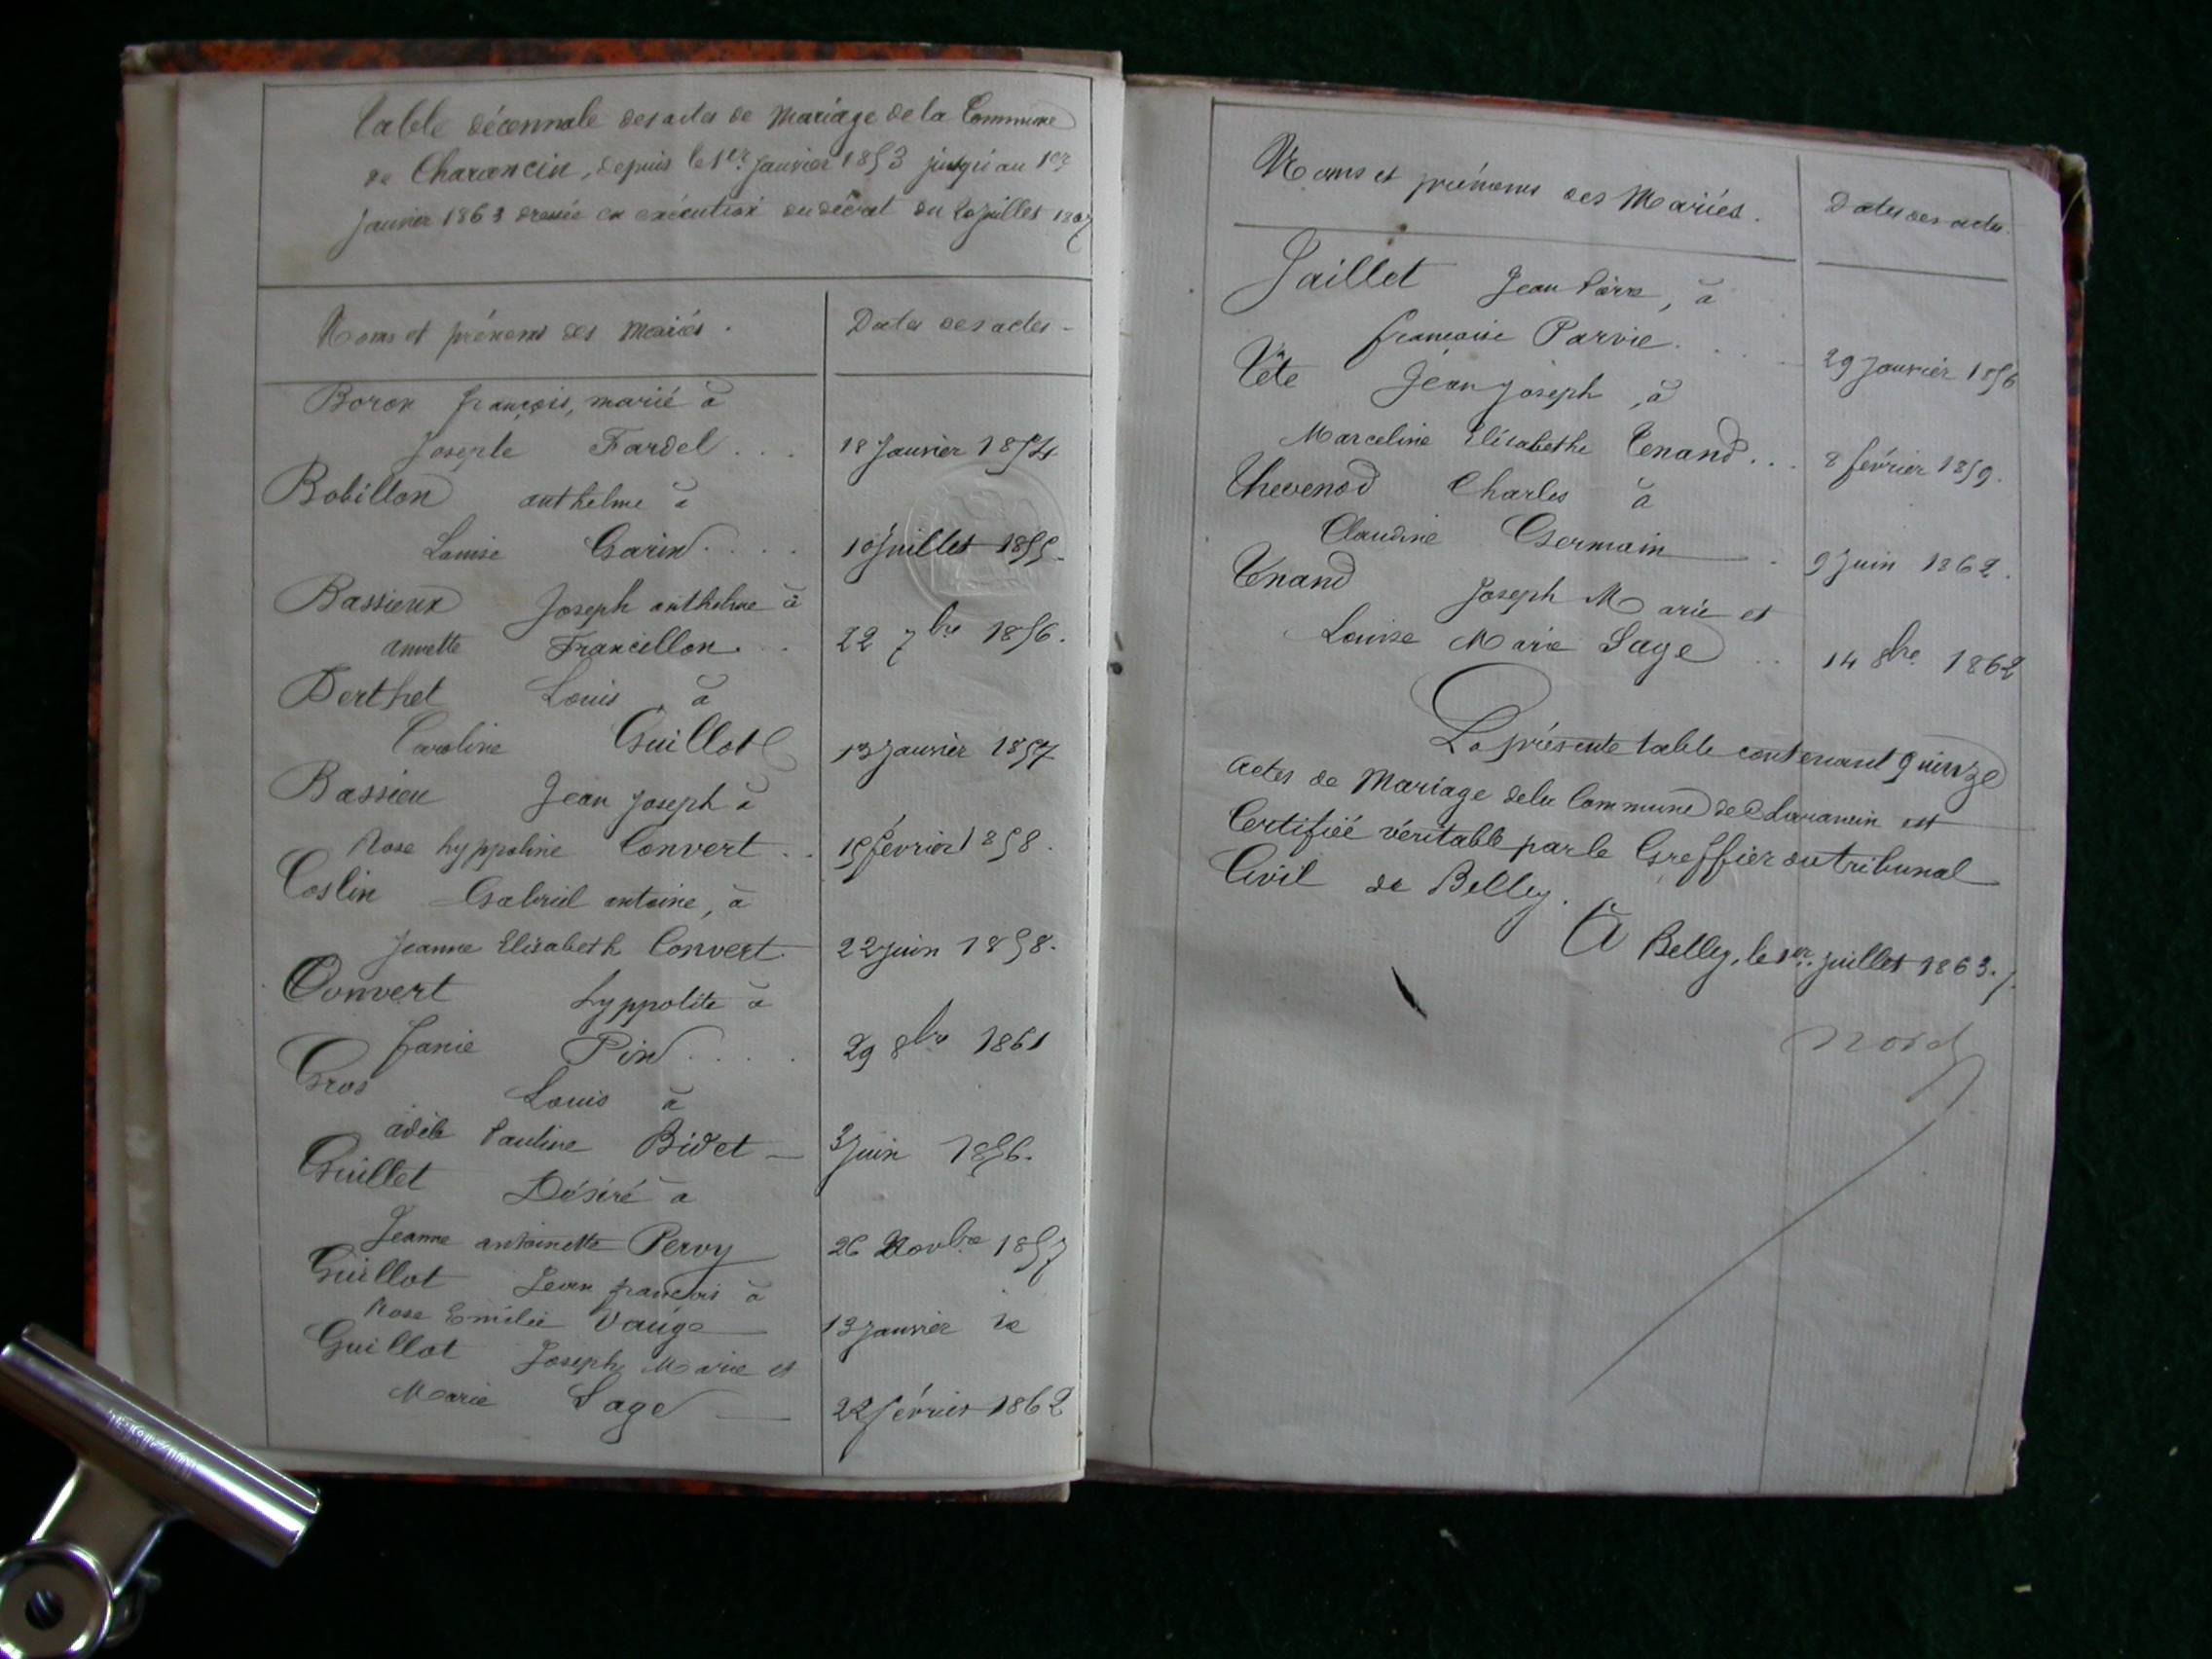 Table décennale des actes de Mariage de la Commune
de Charancin, depuis le 1er Janvier 1853 jusqu'au 1er
Janvier 1863 dressée en exécution du décret du 20 Juillet 1807
Noms et prénoms des Mariés.
Dates des actes
Boron françois, marié à
Josephte Fardel . . . 18 Janvier 1854
Bobillon anthelme à
Louise Garin . . . . 10 Juillet 1855.
Bassieux Joseph anthelme à
annette Francillon . . . 22 7bre 1856.
Berthet Louis, à
Caroline Guillot 13 Janvier 1857
Bassieu Jean Joseph à
Rose hyppoline Convert . . 15 février 1858.
Coslin Gabriel antoine, à
Jeanne Elisabeth Convert. 22 Juin 1858.
Convert hyppolite à
fanie Pin . . . . 29 8bre 1861
Gros Louis à
adèle Pauline Bidet 3 Juin 1856.
Guillet Désiré à
Jeanne antoinette Pervy 26 Novbre 1857
Guillot Jean françois à
Rose Emilie Vauge 13 Janvier
Guillot Joseph Marie et
Marie Sage 22 février 1862
Noms et prénoms des Mariés.
Dates des actes.
Jaillet Jean Pierre, à
francoise Parvie . . . 29 Janvier 1856
Tête Jean Joseph, à
Marceline Elisabethe Tenand . . . 8 février 1859.
Thevenod Charles à
Claudine Germain . 9 Juin 1862.
Tenand Joseph Marie et
Louise Marie Sage . . 14 8bre 1862
La présente table contenant quinze
actes de Mariage de la Commune de Charancin est
Certifiée véritable par le Greffier du tribunal
Civil de Belley.
A Belley, le 1er Juillet 1863.